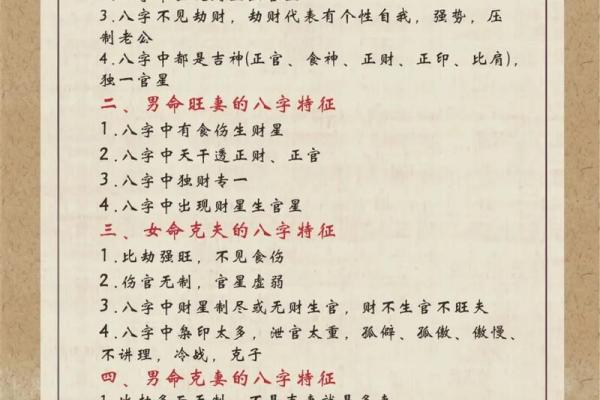 3.八字不见劫财，劫财代表有个性自我，强势，压
制老公
4.八字中都是吉神(正官、食神、正财、正印、比肩)，
独一官星
二、男命旺妻的八字特征
1.八字中有食伤生财星
2.八字中天干透正财、正官
3.八字中独财专一
4.八字中出现财星生官星
三、女命克夫的八字特征
1.比劫强旺，不见食伤
2.伤官无制，官星虚弱
3.八字中财星制尽或无财生官，财不生官不旺夫
4.八字中枭印太多，泄官太重，孤僻、孤傲、傲慢、
不讲理，冷战，克子
四、男命克妻的八字特征